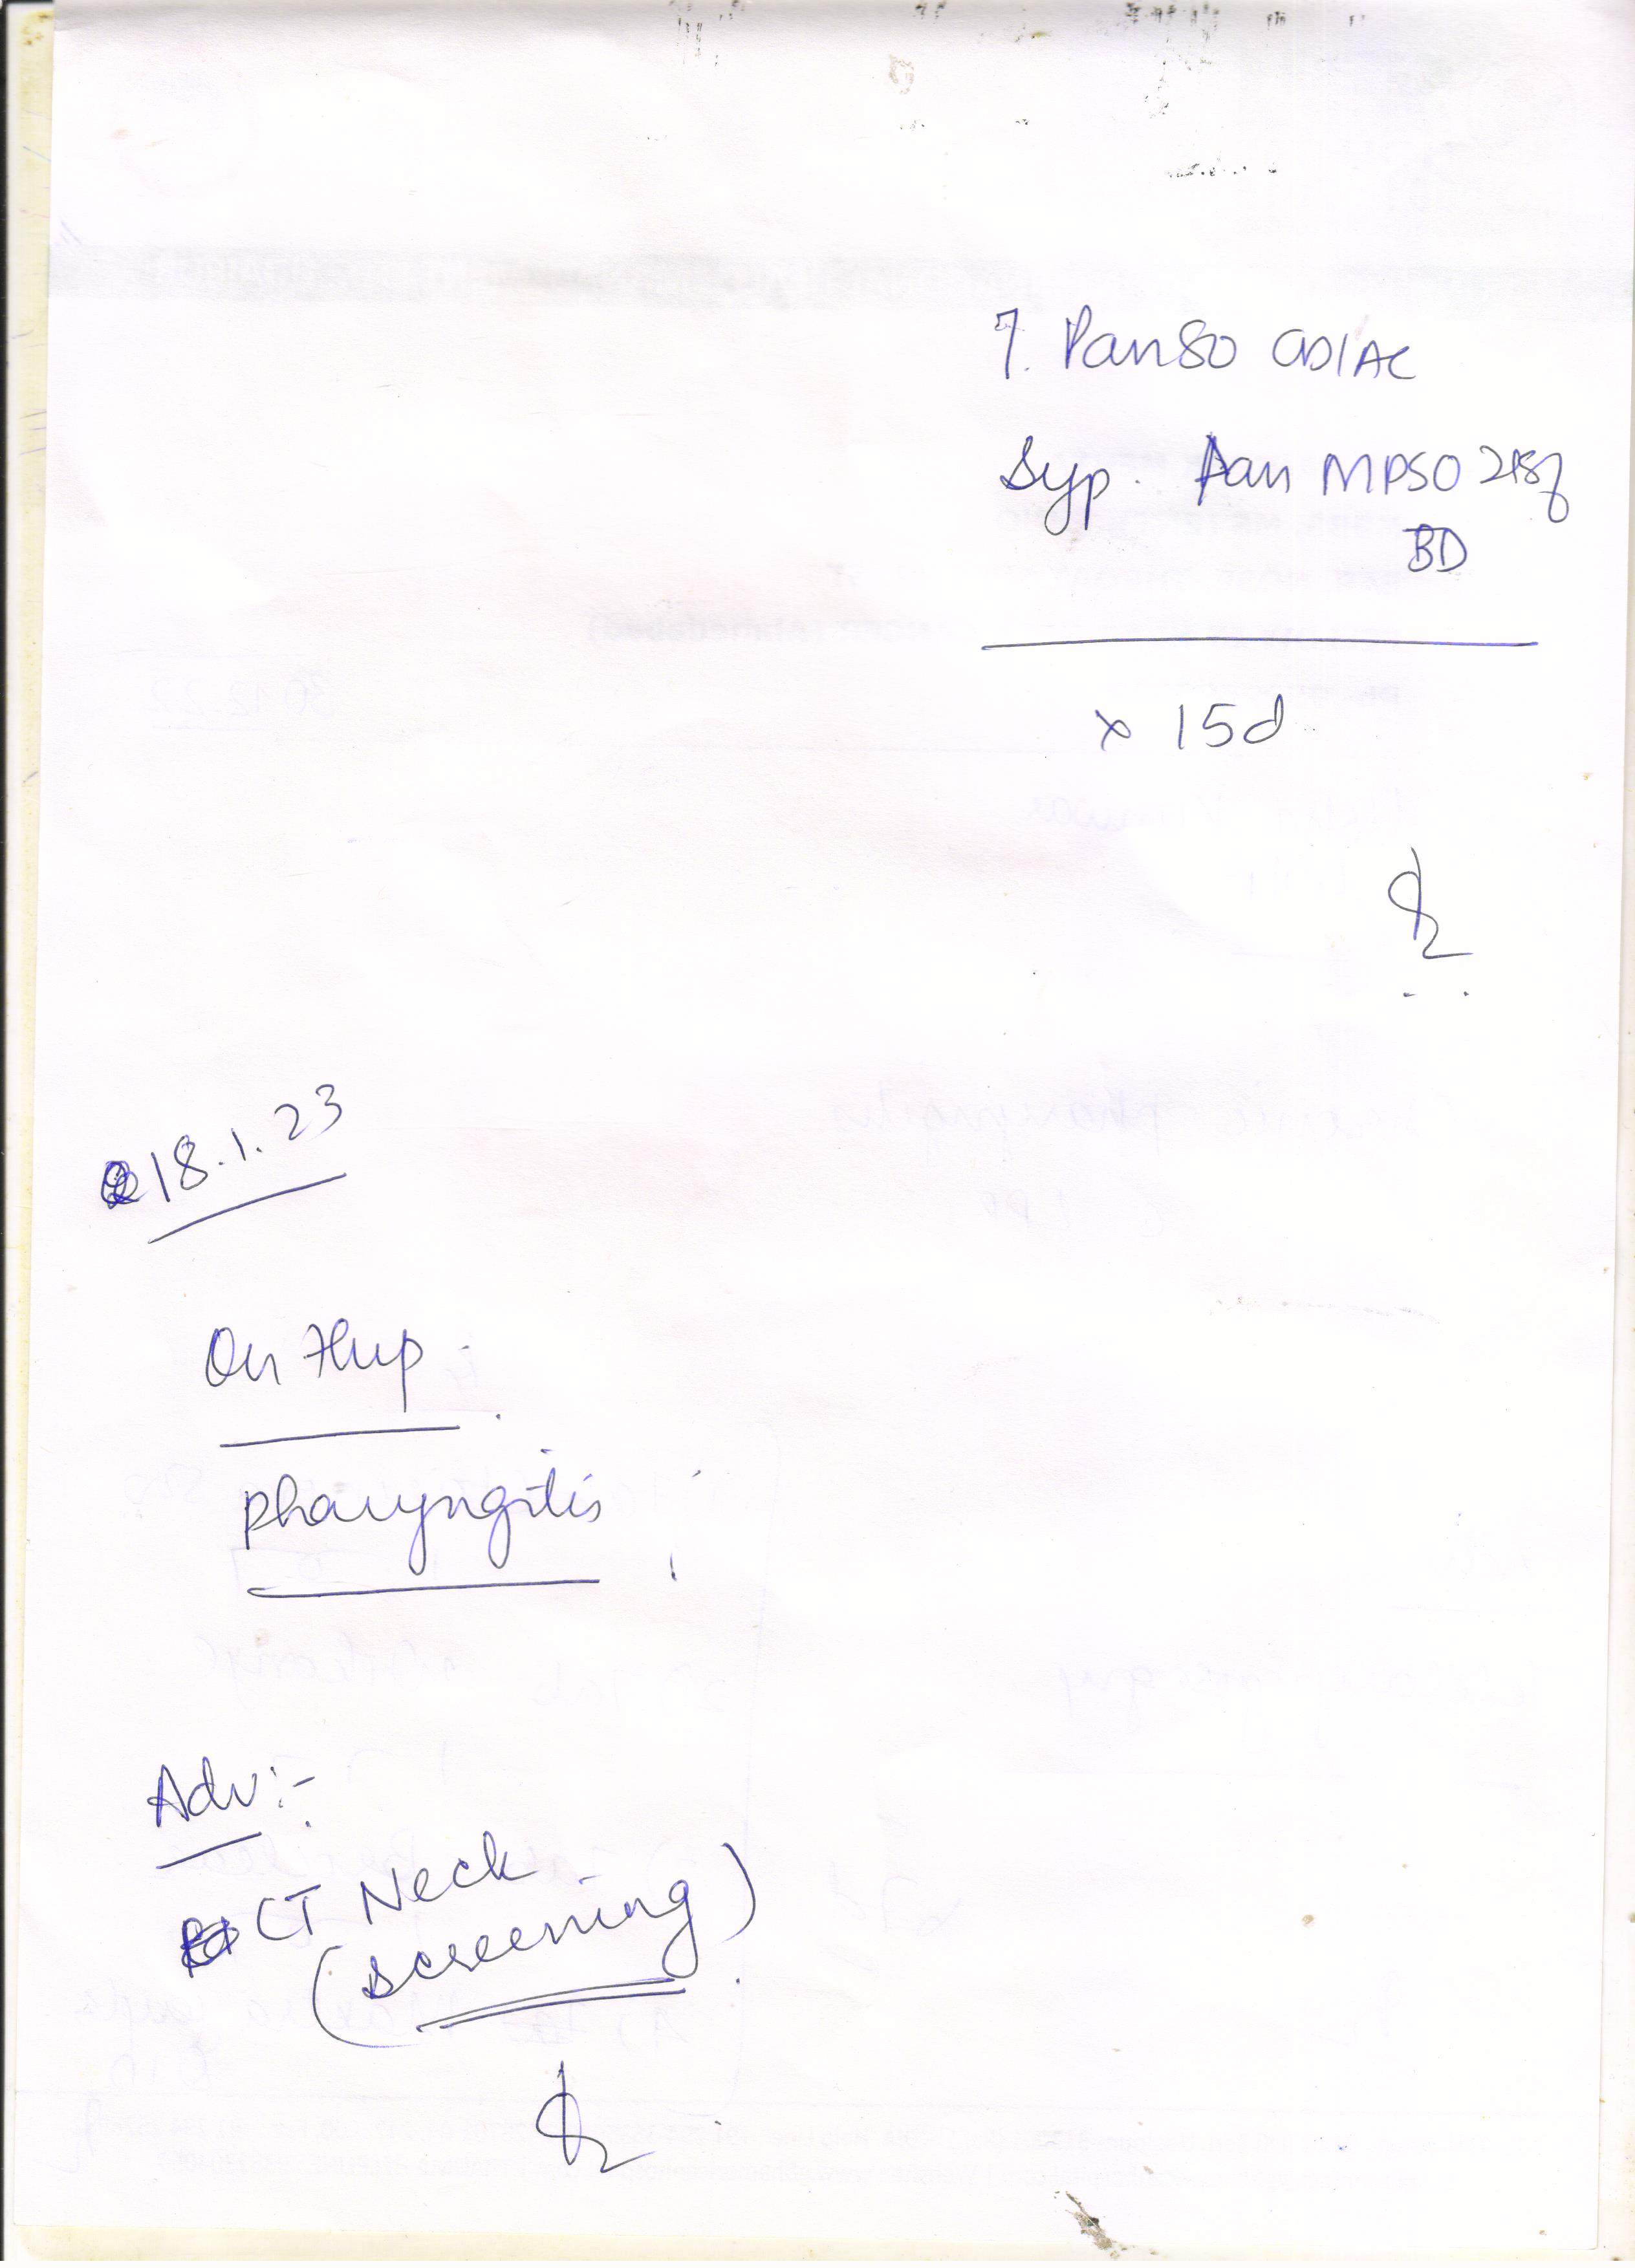 T. Pan 80 OD/AC
Syp. Pan MPSO 2tsf
BD
x 15d
18.1.23
On flup.
pharyngitis
Adv:-
CT Neck
(screening)